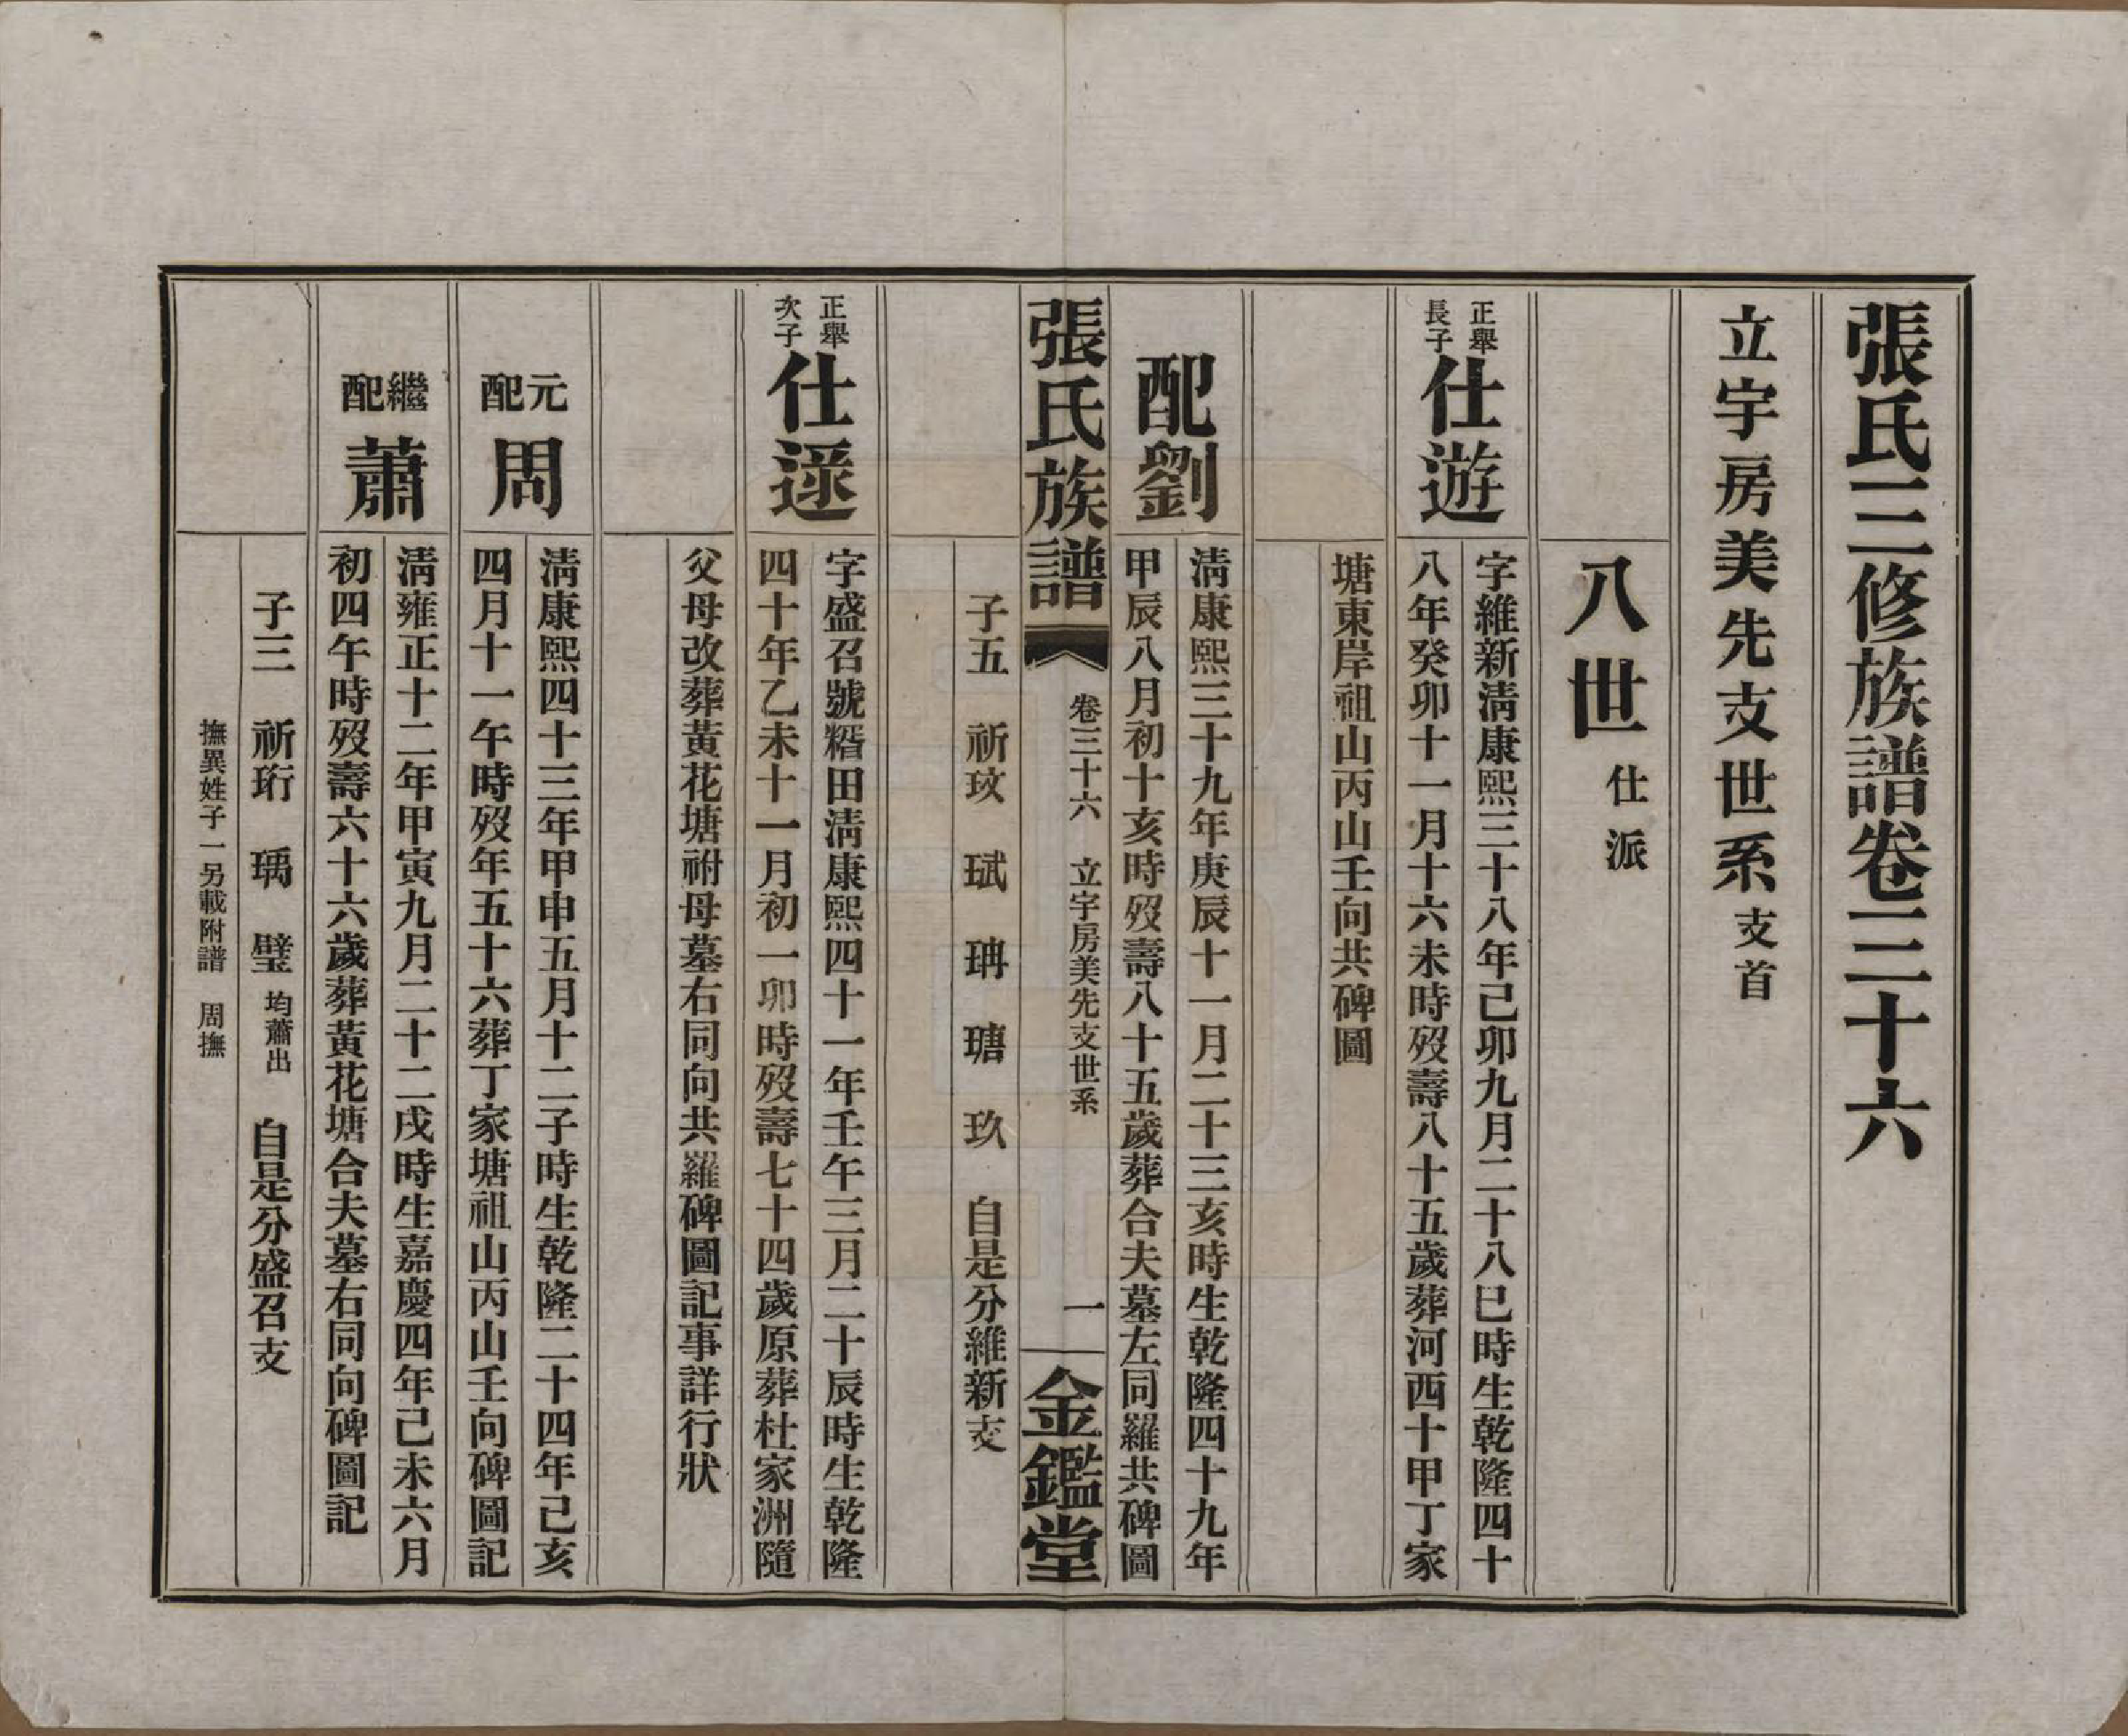 張氏三修族譜卷三十六
立宇房美先支世系支首
八世仕派
正舉長子
仕遊
字維新淸康熙三十八年己卯九月二十八巳時生乾隆四十
八年癸卯十一月十六未時歿壽八十五歲葬河西十甲丁家
塘東岸祖山丙山壬向共碑圖
配劉
淸康熙三十九年庚辰十一月二十三亥時生乾隆四十九年
甲辰八月初十亥時歿壽八十五歲葬合夫墓左同羅共碑圖
張氏族譜
卷三十六 立宇房美先支世系
一
金鑑堂
子五 祈玟 珷 珃 瑭 玖 自是分維新支
正舉次子
仕逯
字盛召號糈田淸康熙四十一年壬午三月二十辰時生乾隆
四十年乙未十一月初一卯時歿壽七十四歲原葬杜家洲隨
父母改葬黃花塘祔母墓右同向共羅碑圖記事詳行狀
元配
周
淸康熙四十三年甲申五月十二子時生乾隆二十四年己亥
四月十一午時歿年五十六葬丁家塘祖山丙山壬向碑圖記
繼配
蕭
淸雍正十二年甲寅九月二十二戌時生嘉慶四年己未六月
初四午時歿壽六十六歲葬黃花塘合夫墓右同向碑圖記
子三 祈珩 瑀 璧 均蕭出 自是分盛召支
撫異姓子一另載附譜 周撫